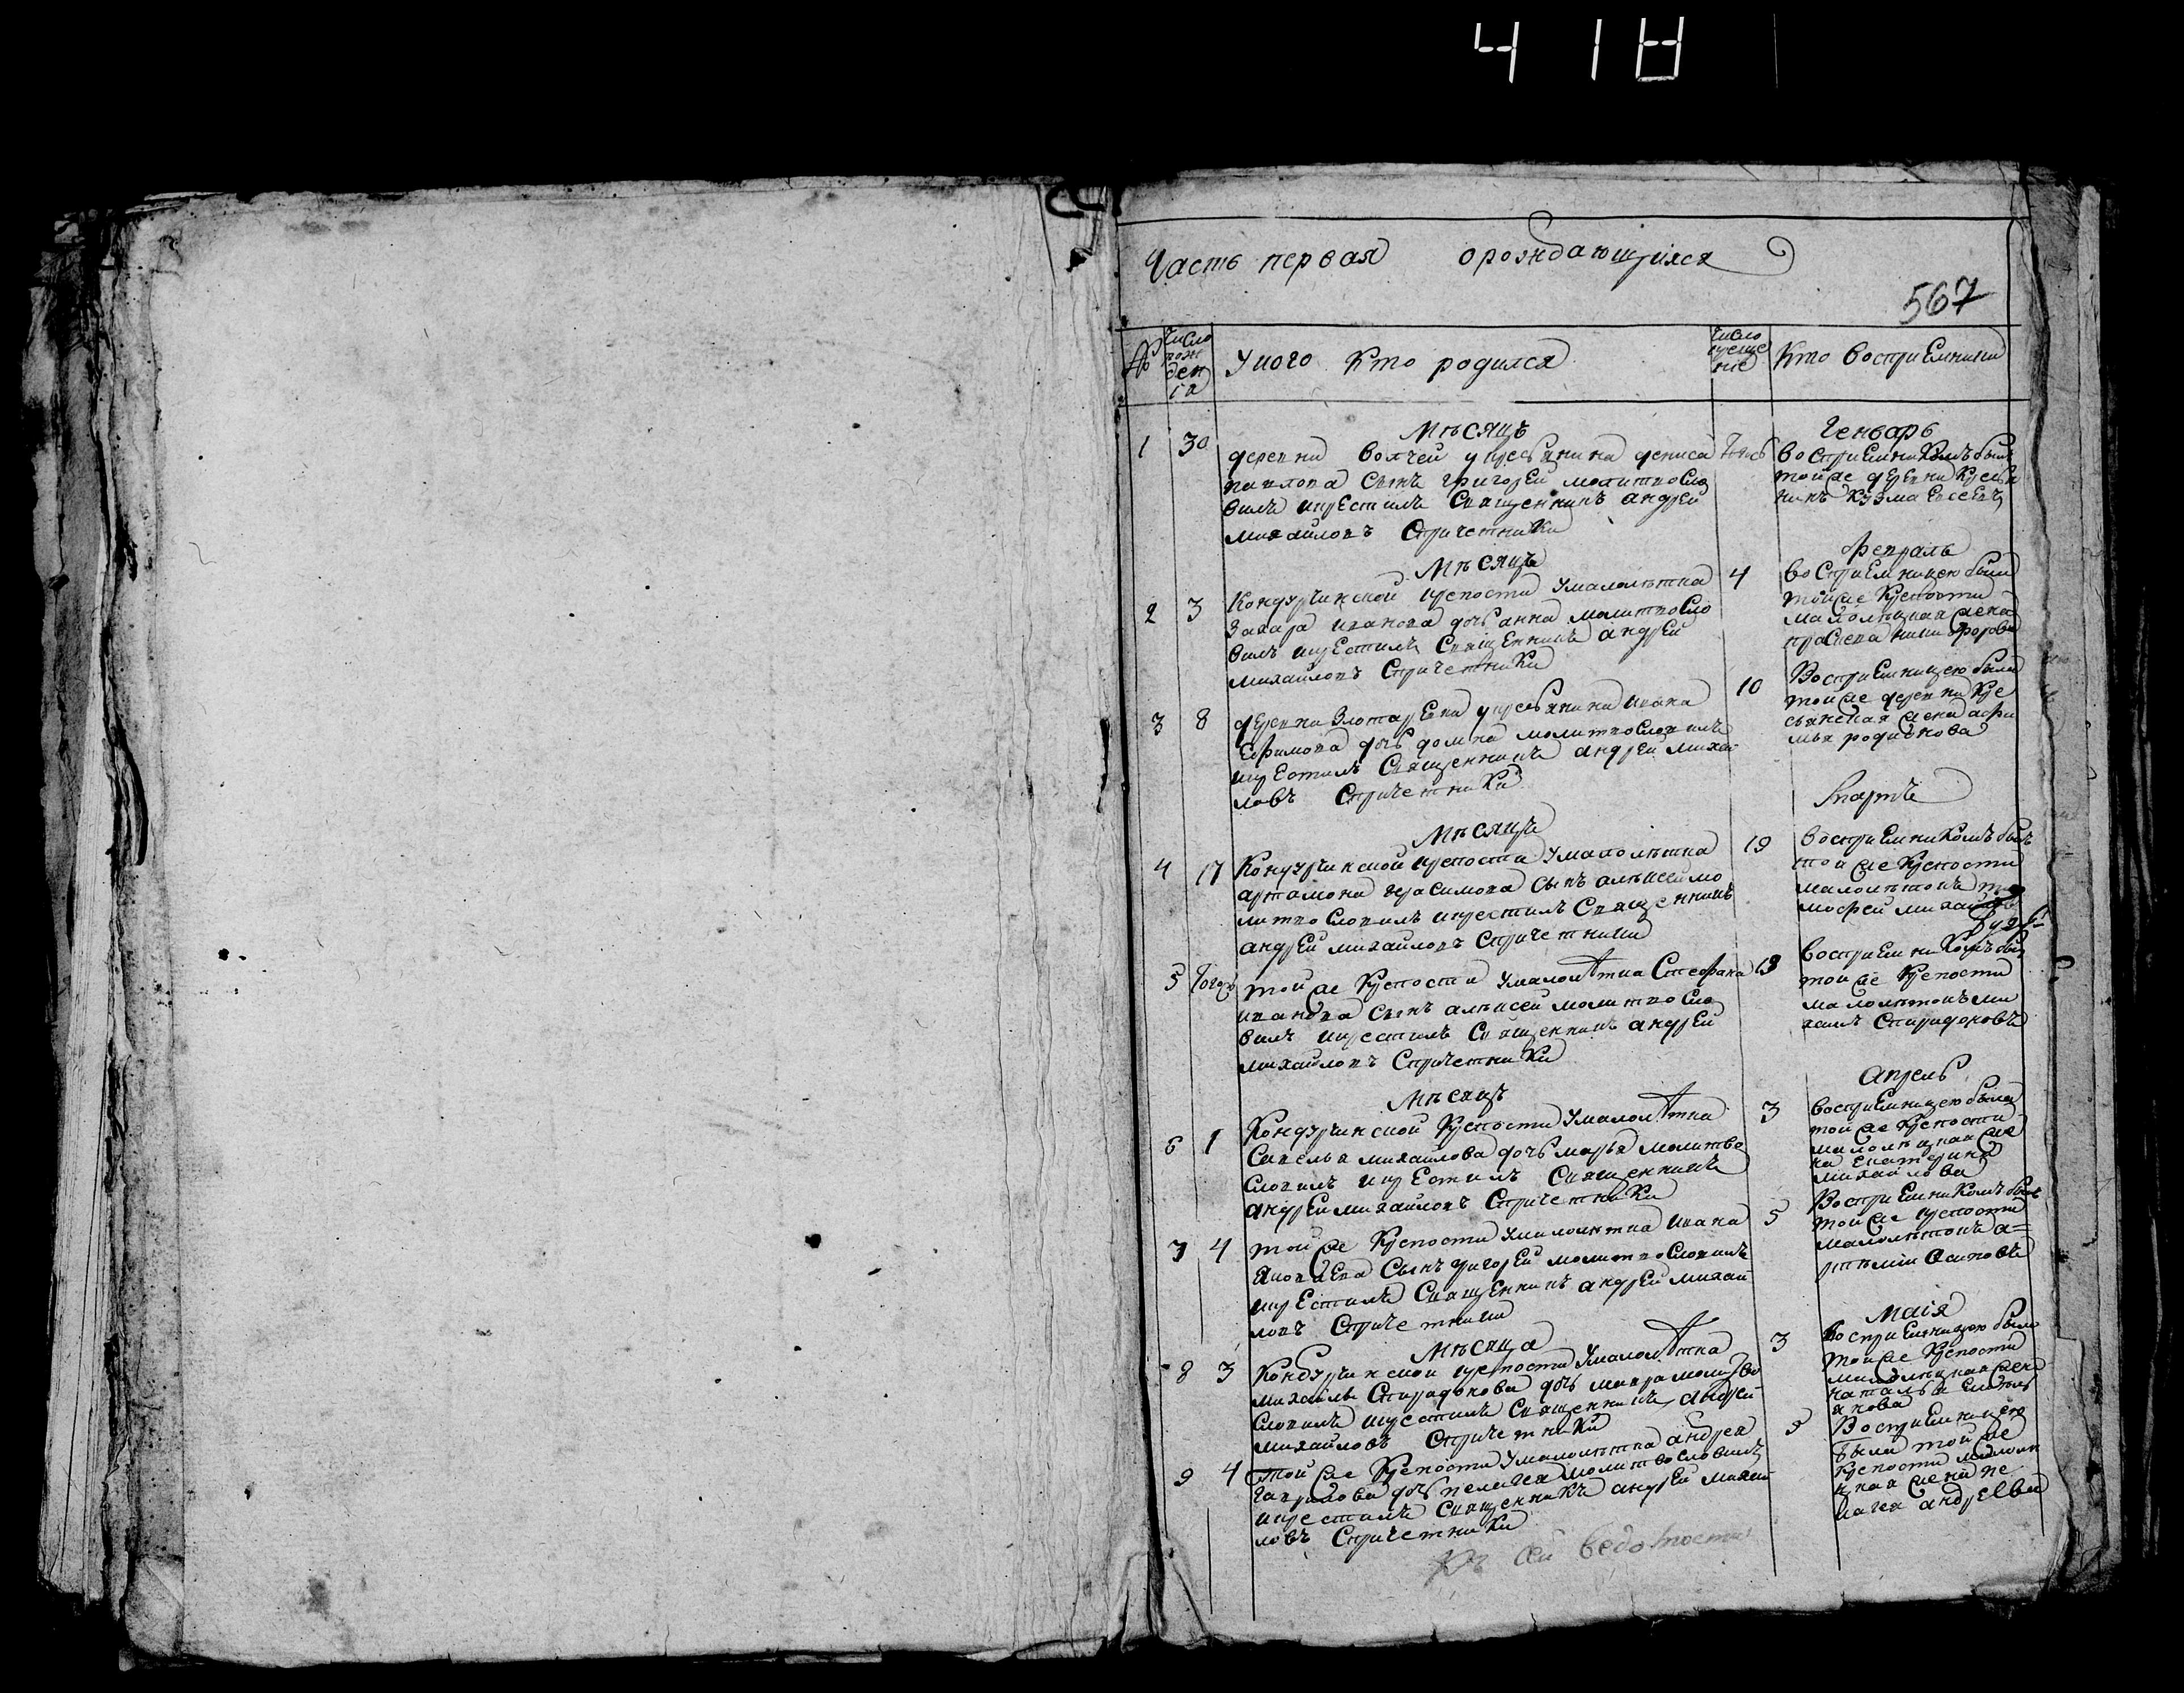 418
Часть первая ораждающихся
567
№
число рожденiя
у кого кто родился
число крещенiе
кто воспрiемники
Мѣсяцъ Генварь
1 30 деревни волчей укрестьянина дениса
павлова сынъ григореи молитвосло
вилъ икрестилъ Священникъ андреи
михаиловъ Спричетники
воспрiемникомъ былъ
тойже деревни крестья
нинъ кузма евсеевъ
Мѣсяцъ Февраль
2 3 Кондурчинской крепости Умалолѣтка
Захара иванова дочь анна молитвосло
вилъ икрестилъ Священникъ андреи
михаиловъ Спричетники
4 воспрiемницею была
тойже крепости
малолѣцкая жена
прасковя никифорова
3 8 деревни Злотаревки укрестьянина ивана
Ефимова дочь домна молитвословилъ
икрестилъ Священникъ андреи михаи
ловъ Спричетники
10 Воспрiемницею была
тойже деревни кре
стьянская жена афи
мья родионова
Мѣсяцъ Мартъ
4 17 Кондурчинской крепости Умалолѣтка
артамона герасимова сынъ алѣксеи мо
литвословилъ икрестилъ Священникъ
андреи михаиловъ Спричетники
19 воспрiемникомъ былъ
тойже крепости
малолѣтокъ ти
мофеи михаиловъ
5 тогожъ тойже крепости Умалолѣтка Стефана
иванова сынъ алѣксеи молитвосло
вилъ икрестилъ Священникъ андреи
михаиловъ Спричетники
19 воспрiемникомъ былъ
тойже крепости
малолѣтокъ ми
хаилъ Спиридоновъ
Мѣсяцъ Апрель
6 1 Кондурчинской крепости Умалолѣтка
Савелья михаилова дочь марья молитво
словилъ икрестилъ Священникъ
андреи михаиловъ Спричетники
3 воспрiемницею была
тойже крепости
малолѣцкая же
на екатерина
михаилова
7 4 тойже крепости Умалолѣтка ивана
яковлева сынъ григореи молитвословилъ
икрестилъ Священникъ андреи михаи
ловъ Спричетники
5 Воспрiемникомъ былъ
тойже крепости
малолѣтокъ а=
ртѣмiи осиповъ
Мѣсяца Маiя
8 3 Кондурчинской крепости Умалолѣтка
михаилы Спиридонова дочь мавра молитво
словилъ икрестилъ Священникъ андреи
михаиловъ Спричетники
3 воспрiемницею была
тойже крепости
малолѣцкая жена
наталья
янова
9 4 тойже крепости Умалолѣтка андрея
гаврилова дочь пелагея молитвословилъ
икрестилъ Священникъ андреи михаи
ловъ Спричетники
5 Воспрiемницею
была тойже
крепости малолѣ
цкая жена пе
лагея андреева
Къ сей ведомости